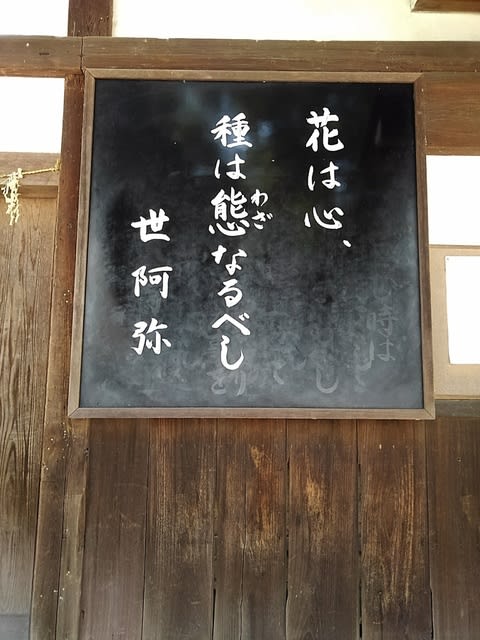 花は心、
種は態なるべし
わざ
世阿弥